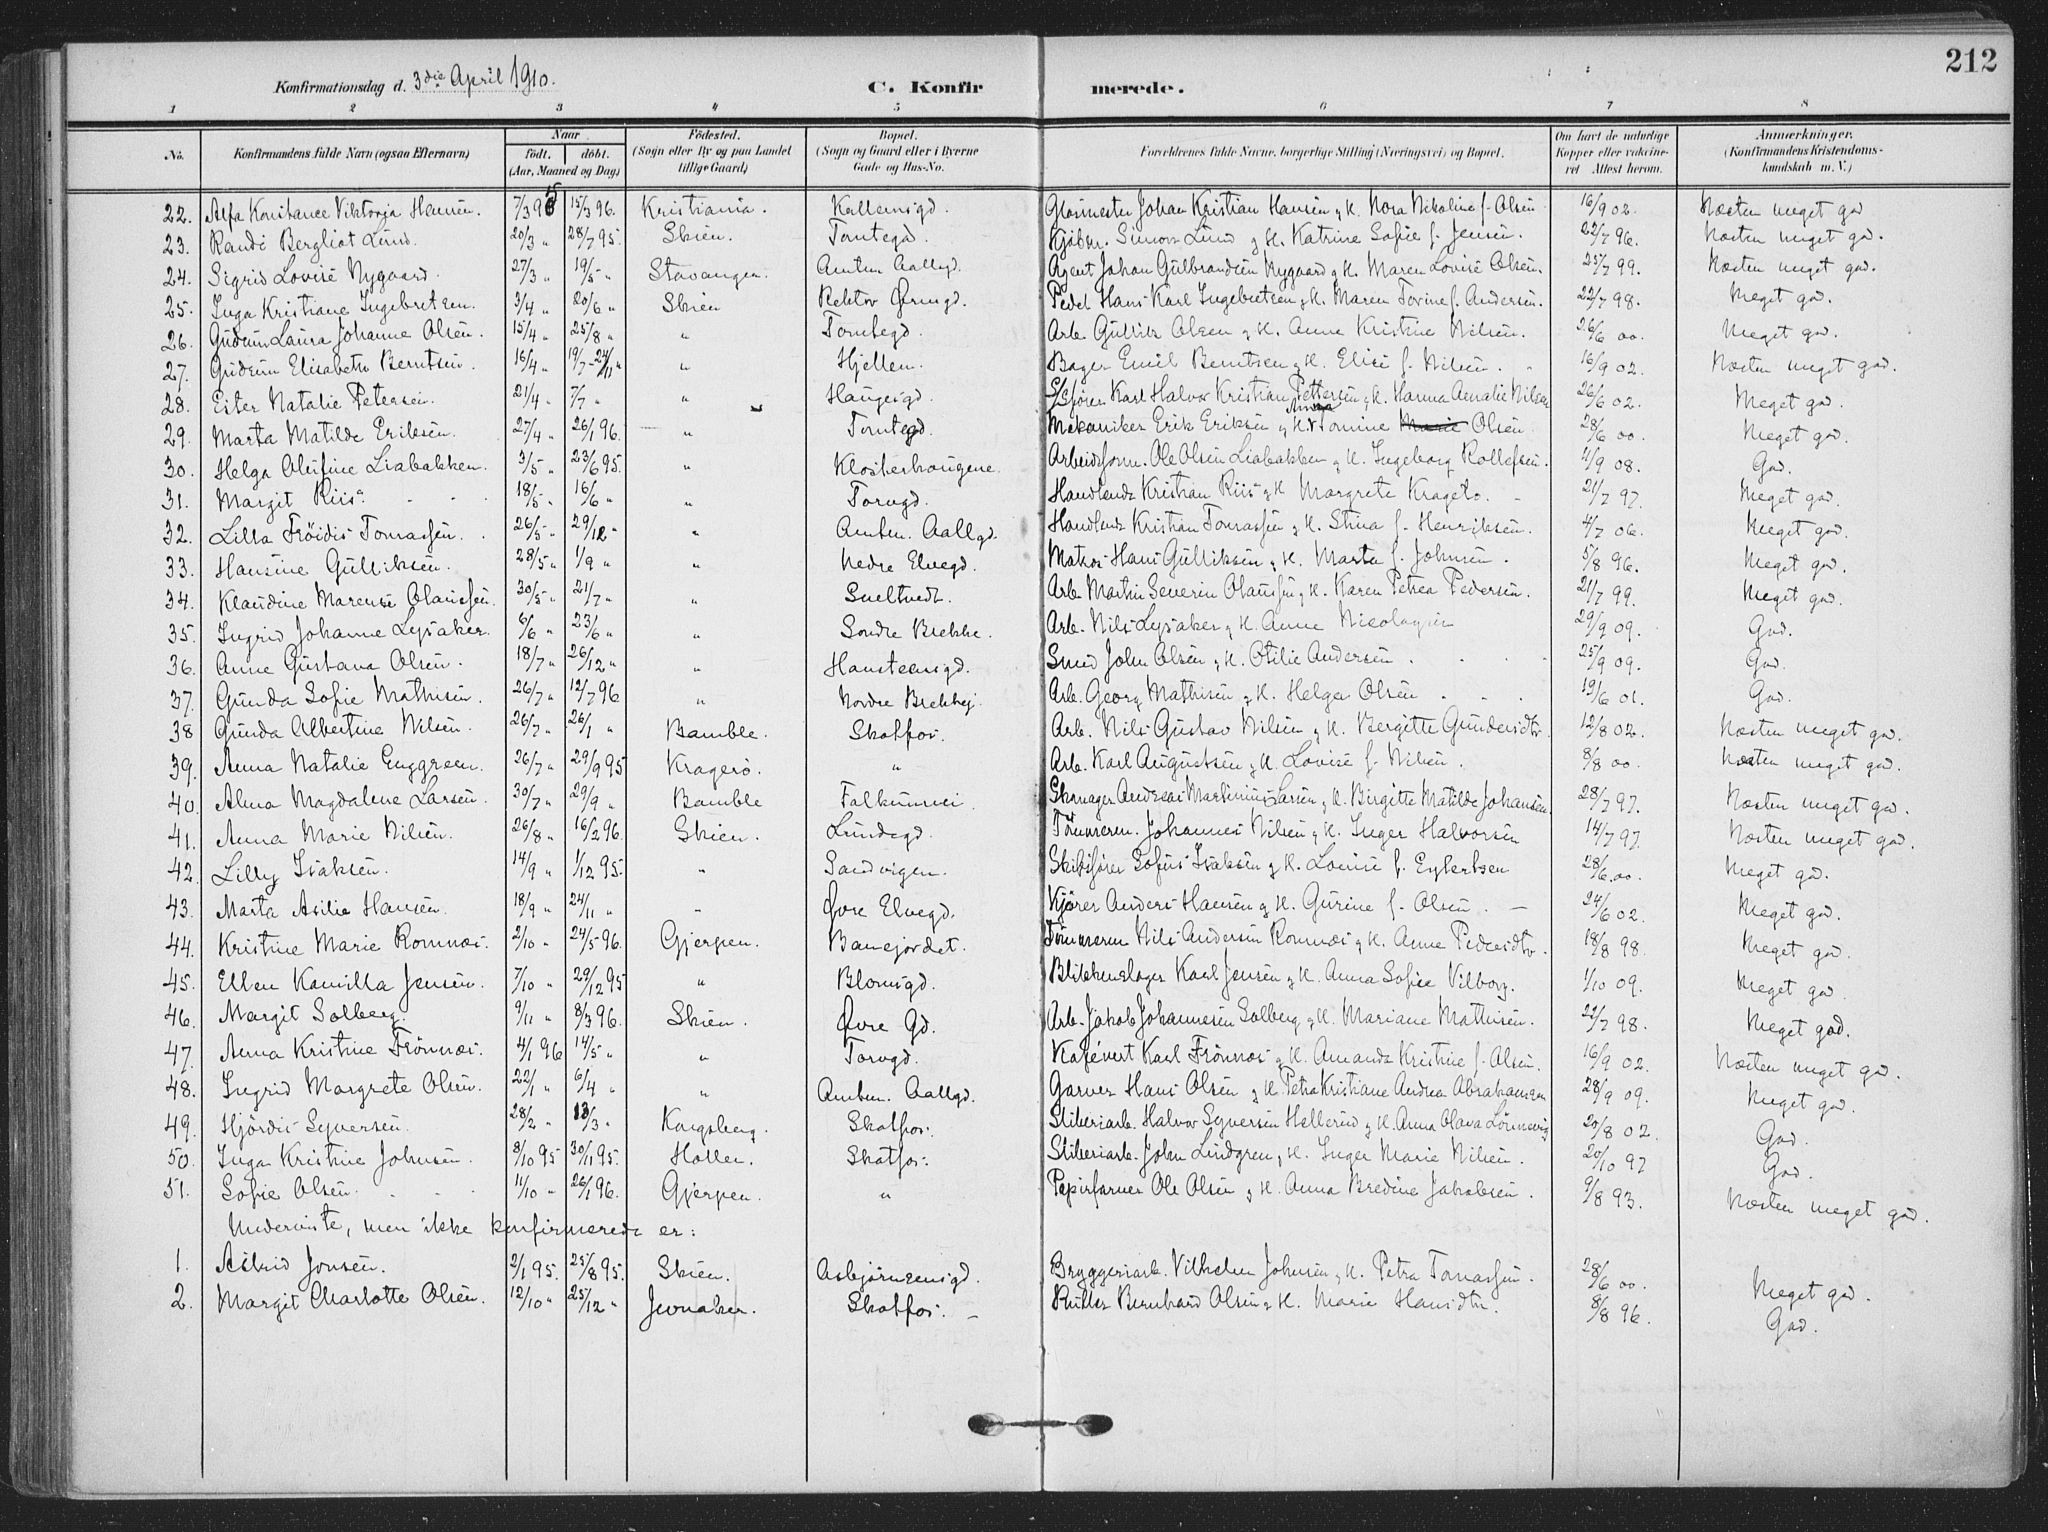 212
Konfirmationsdag d. 3die April 1910.
C. Konfirmerede.
1 2 3 4 5 6 7 8
No. | Konfirmandens fulde Navn (ogsaa Efternavn) | Naar födt. döbt. (Aar, Maaned og Dag) | Födested. (Sogn eller By og paa Landet tillige Gaard) | Bopæl. (Sogn og Gaard eller i Byerne Gade og Hus-No. | Forældrenes fulde Navne, borgerlige Stilling (Næringsvei) og Bopæl. | Om havt de naturlige Kopper eller vakcineret. Attest herom. | Anmærkninger. (Konfirmandens Kristendomskundskab m. V.)
22. Alfa Konstance Viktorja Hansen. 7/3 95 15/3 96. Kristiania. Kallumsgd. Johan Kristian Hansen g H. Nora Nikoline f. Olsen 16/9 02. Næsten meget god
23. Randi Bergliot Lund. 20/3 " 28/7 95. Skien. Tomtegd. Kjøbm. Simon Lund g H. Katrine Sofie f. Jensen. 22/7 96. Næsten meget god.
24. Sigrid Lovise Nygaard. 27/3 " 19/5 " Stavanger. Amtm. Aallgd. Agent Johan Gulbrandsen Nygaard g H. Maren Lovise Olsen. 25/7 99. Næsten meget god.
25. Inga Kristiane Ingebretsen. 3/4 " 20/6 " Skien Rektor Ørnsgd. Pedel Hans Karl Ingebretsen g H. Maren Tovine f. Andersen. 22/7 98. Meget god.
26. Gudrun Laura Johanne Olsen. 15/4 " 25/8 " " Tomtegd. Arb. Gullik Olsen g H. Anne Kristine Nilsen. 26/6 00. Meget god.
27. Gudrun Elisabeth Berntsen. 16/4 " 19/7-24/11 " " Hjellen. Bager Emil Berntsen g H. Elise f. Nilsen. 16/9 02. Næsten meget god.
28. Ester Natalie Petersen. 21/4 " 7/7 " " Haugesgd. S/Sfører Karl Halvor Kristian Pettersen g H. Hanna Amalie Nilsen 26/6 02. Meget god.
29. Marta Matilde Eriksen. 27/4 " 26/1 96. " Tomtegd. Mekaniker Erik Eriksen g H. Anna Tomine Marie Olsen 28/6 00. Meget god.
30. Helga Olufine Liabakken. 3/5 " 23/6 95. " Klosterhougene. Arbeidsform. Ole Olsen Liabakken g H. Ingeborg Rollefsen. 4/9 08. God.
31. Margit Riis. 18/5 " 16/6 " " Torvgd. Handlende Kristian Riis g H Margrete Krageto. 21/7 97. Meget god.
32. Lilla Fröidis Tomassen. 26/5 " 29/12 " " Amtm. Aallgd. Handlende Kristian Tomassen g H. Stina f. Henriksen. 4/7 06. Meget god.
33. Hansine Gulliksen. 28/5 " 1/9 " " Nedre Elvegd. Matros Hans Gulliksen g H. Marta f. Johnsen. 5/8 96. Meget god.
34. Klaudine Marensé Olaussen. 30/5 " 21/7 " " Sneltvedt. Arb. Martin Severin Olaussen g H. Karen Petrea Pedersen. 21/7 99. Meget god.
35. Ingrid Johanne Lysaker. 6/6 " 23/6 " " Søndre Brekke. Arb. Nils Lysaker g H. Anne Nicolaysen 29/9 09. God.
36. Anne Gustava Olsen. 18/7 " 26/12 " " Hansteensgd. Smed John Olsen g H. Otilie Andersen. 25/9 09. God.
37. Gunda Sofie Mathisen. 26/7 " 12/7 96 " Nordre Brekkej. Arb. Georg Mathisen g H. Helga Olsen. 19/6 01. God.
38 Gunda Albertine Nilsen. 26/7 " 26/1 " Bamble. Skotfos. Arb. Nils Gustav Nilsen g H. Bergitte Gundersdtr. 12/8 02. Næsten meget god.
39. Anna Natalie Enggreen. 26/7 " 29/9 95 Kragerø. " Arb. Karl Augustsen g H. Lovise f. Nilsen. 8/8 00. Næsten meget god.
40. Alma Magdalene Larsen. 30/7 " 29/9 " Bamble Falkumvei. Skomager Andreas Martinius Larsen g H. Birgitte Matilde Johansen 28/7 97. Næsten meget god.
41. Anna Marie Nilsen. 26/8 " 16/2 96. Skien. Lundegd. Tömmerm. Johannes Nilsen g H. Inger Halvorsen 14/7 97. Næsten meget god.
42. Lilly Isaksen. 14/9 " 1/12 95. " Sandvigen. Skibsfører Sofus Isaksen g H. Louise f. Eylertsen 28/6 00. Meget god.
43. Marta Asilie Hansen. 18/9 " 24/11 " " Øvre Elvegd. Kjører Anders Hansen g H. Gurine f. Olsen. 24/6 02. Meget god.
44. Kristine Marie Romnæs. 2/10 " 24/5 96. Gjerpen. Banejordet. Tömmerm Nils Andersen Romnæs g H. Anne Pedersdtr. 18/8 98. Meget god.
45. Ellen Kamilla Jensen. 7/10 " 29/12 95 " Blomsgd. Blikkenslager Karl Jensen g H. Anna Sofie Vilborg. 1/10 09. Meget god.
46. Margit Solberg. 9/11 " 8/3 96. Skien. Øvre Gd. Arb. Jakob Johannesen Solberg g H. Mariane Mathisen. 22/7 98. Meget god.
47. Anna Kristine Frönnæs. 4/1 96 14/5 " " Torvgd. Kafévert Karl Frönnæs g H. Amanda Kristine f. Olsen. 16/9 02. Næsten meget god.
48. Ingrid Margrete Olsen. 22/1 " 6/4 " " Amtm. Aallgd. Garver Hans Olsen g H. Petra Kristiane Andrea Abrahamsen 28/9 09. Meget god.
49. Hjördis Syversen. 28/2 " 13/3 " Kongsberg. Skotfos. Sliberiarb. Halvor Syversen Hellerud g H. Anna Olava Lönnevig 20/8 02. God.
50. Inga Kristine Johnsen. 8/10 95 30/11 95. Hollen. Skotfos. Sliberiarb. John Lindgren g H. Inger Marie Nilsen. 20/10 97 God.
51. Sofie Olsen. 11/10 " 26/1 96. Gjerpen. " Papirfarver Ole Olsen g H. Anna Bredine Jakobsen. 9/8 93. Næsten meget god.
Underviste, men ikke konfirmerede er:
1. Astrid Jonsen. 2/1 95. 25/8 95. Skien. Asbjørnsensgd. Bryggeriarb. Vilhelm Johnsen g H. Petra Tomassen. 28/6 00. Meget god.
2. Margit Charlotte Olsen. 12/10 " 25/12 " Jevnaker. Skotfos. Bernhard Olsen g H. Marie Hansdtr. 8/8 96. God.